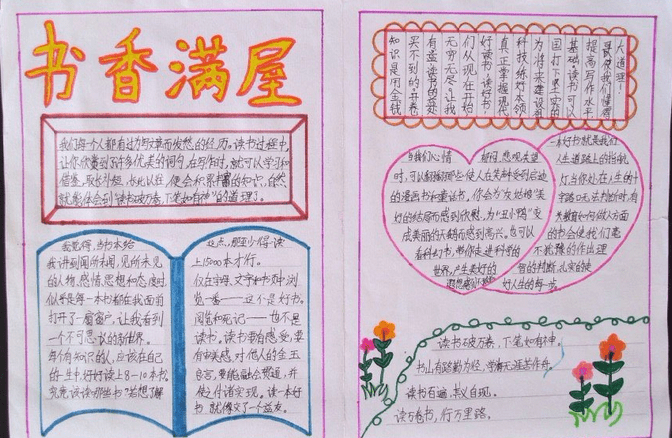 书香满屋
我们每个人都有过为写文章而发愁的经历。读书过程中，
让你欣赏到许许多多优美的词句，在写作时，就可以学习和
借鉴，取长补短，点石以狂，便会积累丰富的知识，自然
就能体会到"读书破万卷，下笔如有神"的道理了。
我觉得，当书本给
我讲到闻所未闻，见所未见
的人物，感情，思想和态度时
似乎是每一本书都在我面前
打开了一扇窗户，让我看到
一个不可思议的新世界。
每个有知识的人，应该在自己
的一生中，好好读上8-10本书
究竟该读哪些书
若想了解
这点，那至少得读
上15000本才行。
仅在字母、文字和书页中浏
览一番——这不是好书。
阅览和死记——也不是
读书。读书要有感受，要
有审美感，对他人的金玉
良言，要能融会贯通，并
使之付诸实现。读一本好
书，就像交了一个益友。
大道理！
哥使我们懂得
提高写作水平，
基础；读书可以
国打下坚实的
为将来建设祖
科技，练好本领
真正掌握现代
好读书，读好书
们从现在开始
无穷无尽，让我
有益，读书的益处
买不到的，开卷
知识是用金钱
当我们心情
郁闷，悲观失望
时，可以翻翻那些使人在笑声受到启迪
的漫画书和童话书，你会为灰姑娘"美
好的结局而感到欣慰，为"丑小鸭"变
成美丽的天鹅而感到高兴。也可以
看科幻书，带你走进科学的
世界，产生美好的
一本好书就是我们
人生道路上的指明
灯，当你处在人生的十
字路口，无法判断时，有
关教育如何做人方面
的书会使我们毫
不犹豫的作出理
智的判断，扎实的走
好人生的每一步。
读书破万卷，下笔如有神。
书山有路勤为径，学海无涯苦作舟。
读书百遍，其义自现。
读万卷书，行万里路。